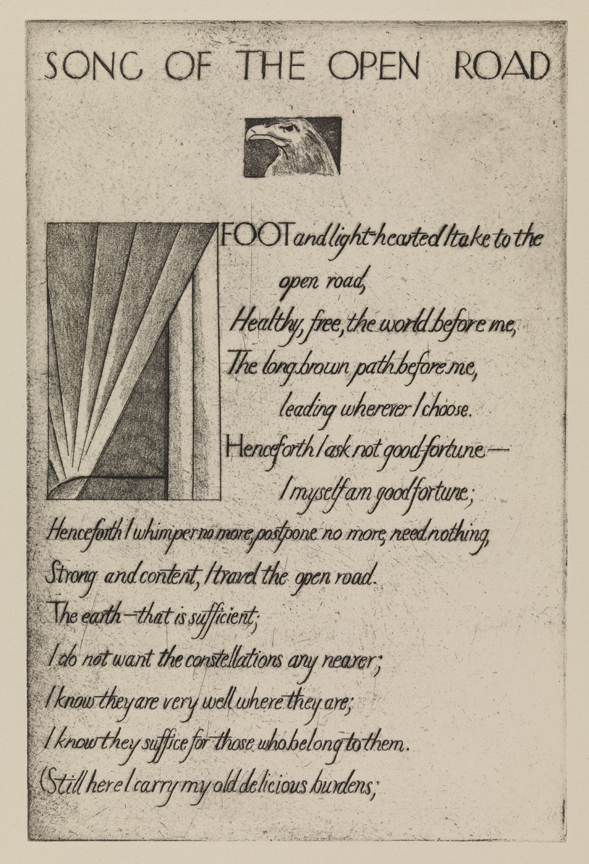 SONG OF THE OPEN ROAD
AFOOT and light-hearted I take to the
open road,
Healthy, free, the world before me,
The long brown path before me,
leading wherever I choose.
Henceforth I ask not good-fortune—
I myself am good fortune;
Henceforth I whimper no more, postpone no more, need nothing,
Strong and content, I travel the open road.
The earth—that is sufficient;
I do not want the constellations any nearer;
I know they are very well where they are;
I know they suffice for those who belong to them.
(Still here I carry my old delicious burdens;